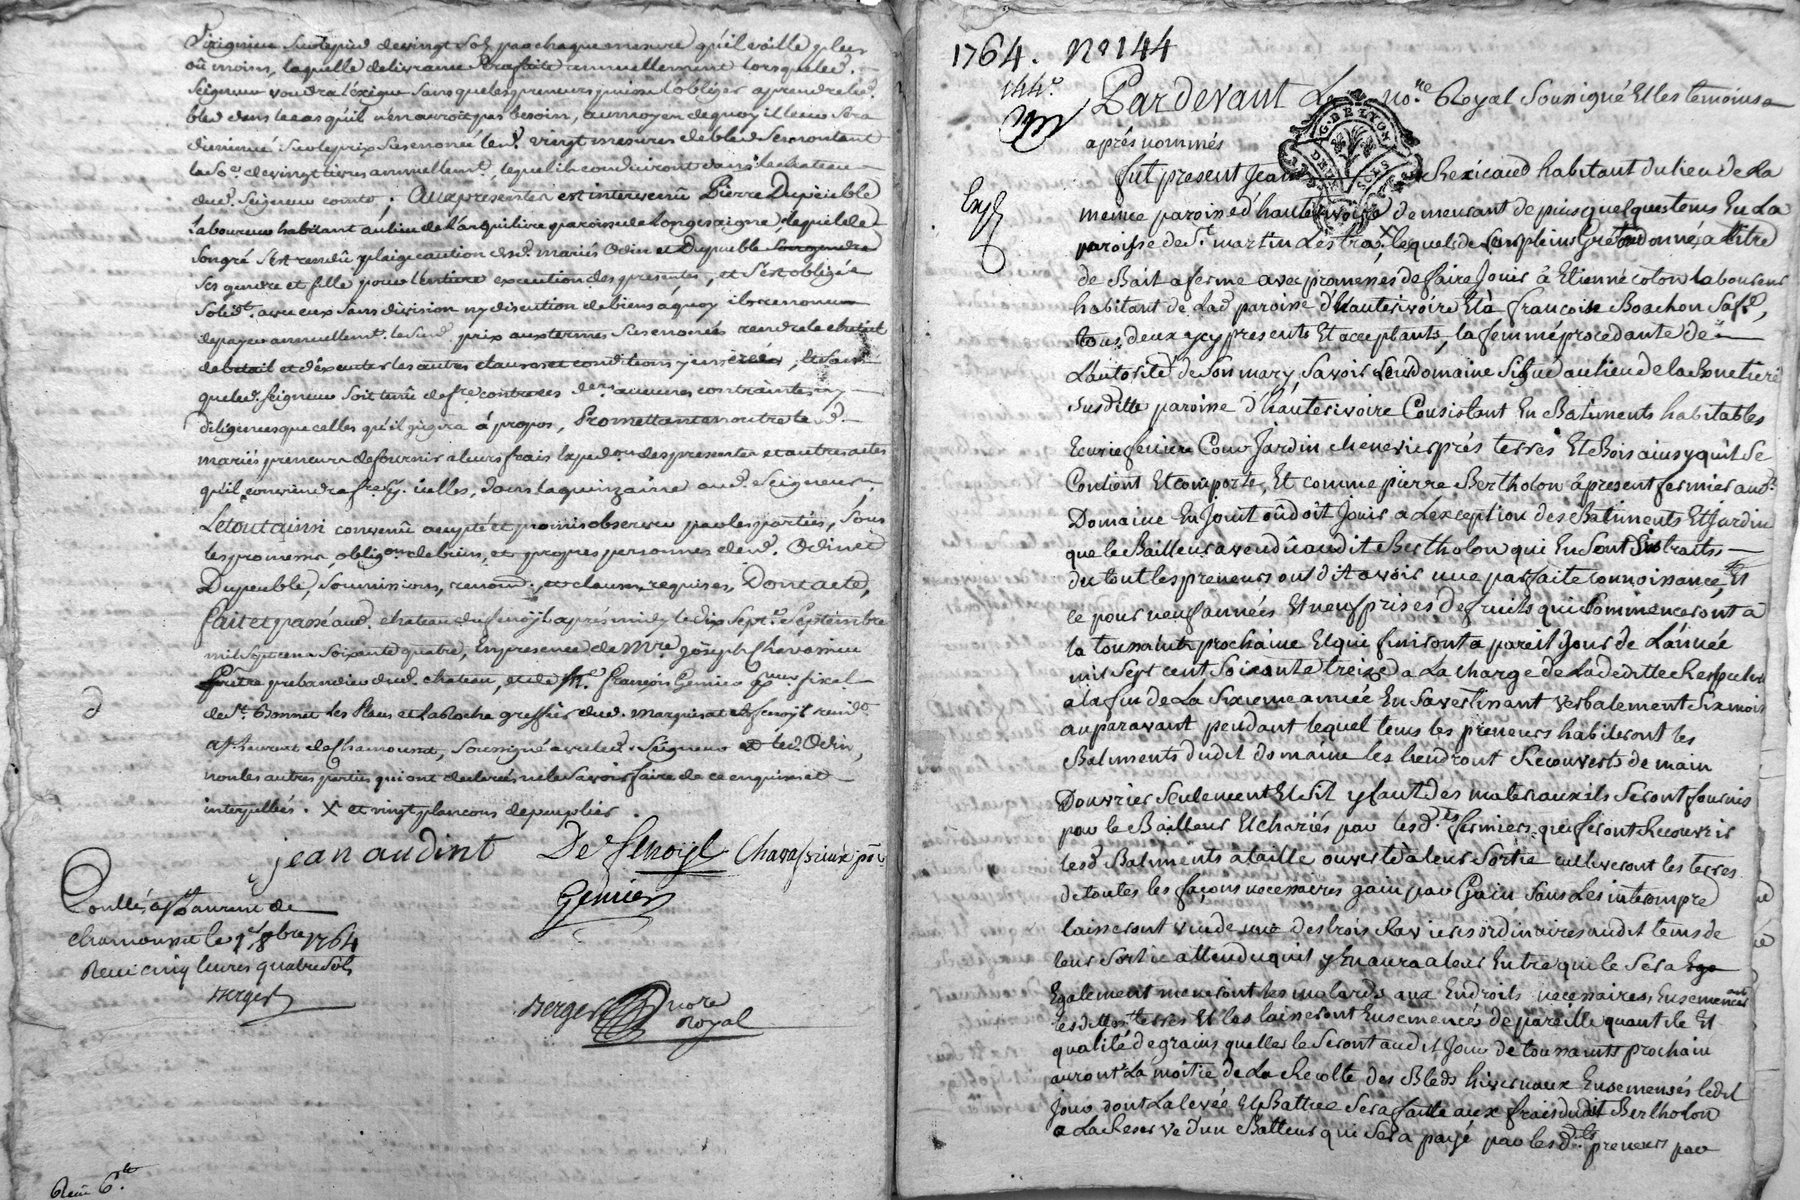 Seigneur sur le pied de vingt sols par chaque mesure qu'il vaille plus
où moins, laquelle delivrance sera faite annuellement lorsque led.
Seigneur voudra l'exiger sans que les preneurs puissent l'obliger a prendre led.
bled dans le cas qu'il n'en auroit pas besoin, au moyen de quoy il leur sera
diminué sur le prix susenoncé les d. vingt mesures de bled se montant
la so.e de vingt livres annuellem.t, lequel ils conduiront dans le chateau
dud. Seigneur comte; Aux presentes est intervenû Pierre Dupeuble
laboureur habitant au lieu de paroisse de Longesaigne, lequel de
son gré s'est rendû plaige caution desd. mariés Odin et Dupeuble
ses gendre et fille pour l'entiere execution des presentes, et s'est obligé
solid.t avec eux sans division ny discution de biens a quoy il a renoncé
de payer annuellem.t le sus d. prix aux termes susenoncés rendre le
de betail et d'executer les autres clauses et conditions y inserées, et sans
que led. Seigneur soit tenû de f.re contre eux aucunes contraintes ny
diligences que celles qu'il jugera à propos, Promettant en outre les d.
mariés preneurs de fournir a leurs frais exped.on des presentes et autres actes
qu'il conviendra fre. icelles, dans la quinzaine aud. Seigneur,
Le tout ainsi convenû accepté et promis observer par les parties, sous
les promesses, oblig.on de biens, et propres personnes desd. Odin et
Dupeuble, soumissions, renon. et clauses requises, Dont acte,
fait et passé aud. chateau de fenoÿl après midy le dix sept.e Septembre
mil sept cens soixante quatre, En presence de M.re Joseph Chavassieu
Prêtre prebandier dud. chateau, et de M.e François Genier fiscal
de St. Bonnet les Places et la Roche greffier dud. marquisat de fenoÿl resid.t
a St. Laurent de Chamousset, Soussigné avec led. Seigneur et led. Odin,
non les autres parties qui ont declaré ne le savoir faire de ce enquises et
interpellées. X et vingt plançons de peuplier.
jean audint De fenoÿl Chavassieux ptre
Genier
Controllé a St. Laurent de
chamousset le 1.er 8bre 1764
Reçu cinq livres quatre sols
Berger
Berger nore
Royal
Reçu 6.
1764. No 144
144e
Exp.
Pardevant Le no.re Royal Soussigné Et les temoins
après nommés
fut present Jean habitant du lieu de La
meme paroisse d'hauterivoire demeurant depuis quelques tems En La
paroisse de St. martin Lestra, X lequel de son plein Gré a donné a titre
de Bail a ferme avec promesses de faire Jouir à Etienne colon Laboureur
habitant de Lad. paroisse d'hauterivoire Et à françoise Boachon Sa fe.,
tous deux ycy presents Et acceptants, la femme procedante de
L'autorité de Son mary, Savoir un domaine Situé au lieu de la
Susditte paroisse d'hauterivoire Consistant En Batiments habitables
Ecurie feniere Cour Jardin chenevier prés terres Et Bois ainsy qu'il Se
Contient Et comporte, Et comme pierre Bertholon apresent fermier aud.
Domaine En Jouit où doit Jouir a L'exception des Batiments Et Jardin
que le Bailleur a vendû audit Bertholon qui En Sont
du tout les preneurs ont dit avoir une parfaite connoissance, Et
ce pour neuf années Et neuf prises de fruits qui Commenceront à
la toussaints prochaine Et qui finiront a pareil Jour de L'année
mil Sept cent Soixante treize a La charge de La deditte Respective
a la fin de La Sixieme année En S'avertissant verbalement Six mois
auparavant pendant lequel tems les preneurs habiteront les
Batiments dudit domaine les tiendront Recouverts de main
D'ouvrier Seulement Et S'il y faut des materiaux ils Seront fournis
par le Bailleur Et chariés par lesd.ts fermiers qui feront Recouvrir
lesd. Batiments a taille ouverte à leur Sortie cultiveront les terres
de toutes les façons necessaires gain par Gain Sans Les interompre
laisseront vuide une des trois Ravieres ordinaires audit tems de
leur Sortie attendu qu'il y En aura a leur Entrée qui le Sera
Egalement meneront les molards aux Endroits necessaires, Ensemenceront
lesdittes terres Et les laisseront Ensemencés de pareille quantité Et
qualité de grains quelles le Seront audit Jour de toussaints prochain
auront La moitié de La Recolte des Bleds hivernaux Ensemensés ledit
Jour dont La levée Et Battue Sera faitte aux frais dudit Bertholon
a La Reserve d'un Batteur qui Sera payé par lesd.ts preneurs par